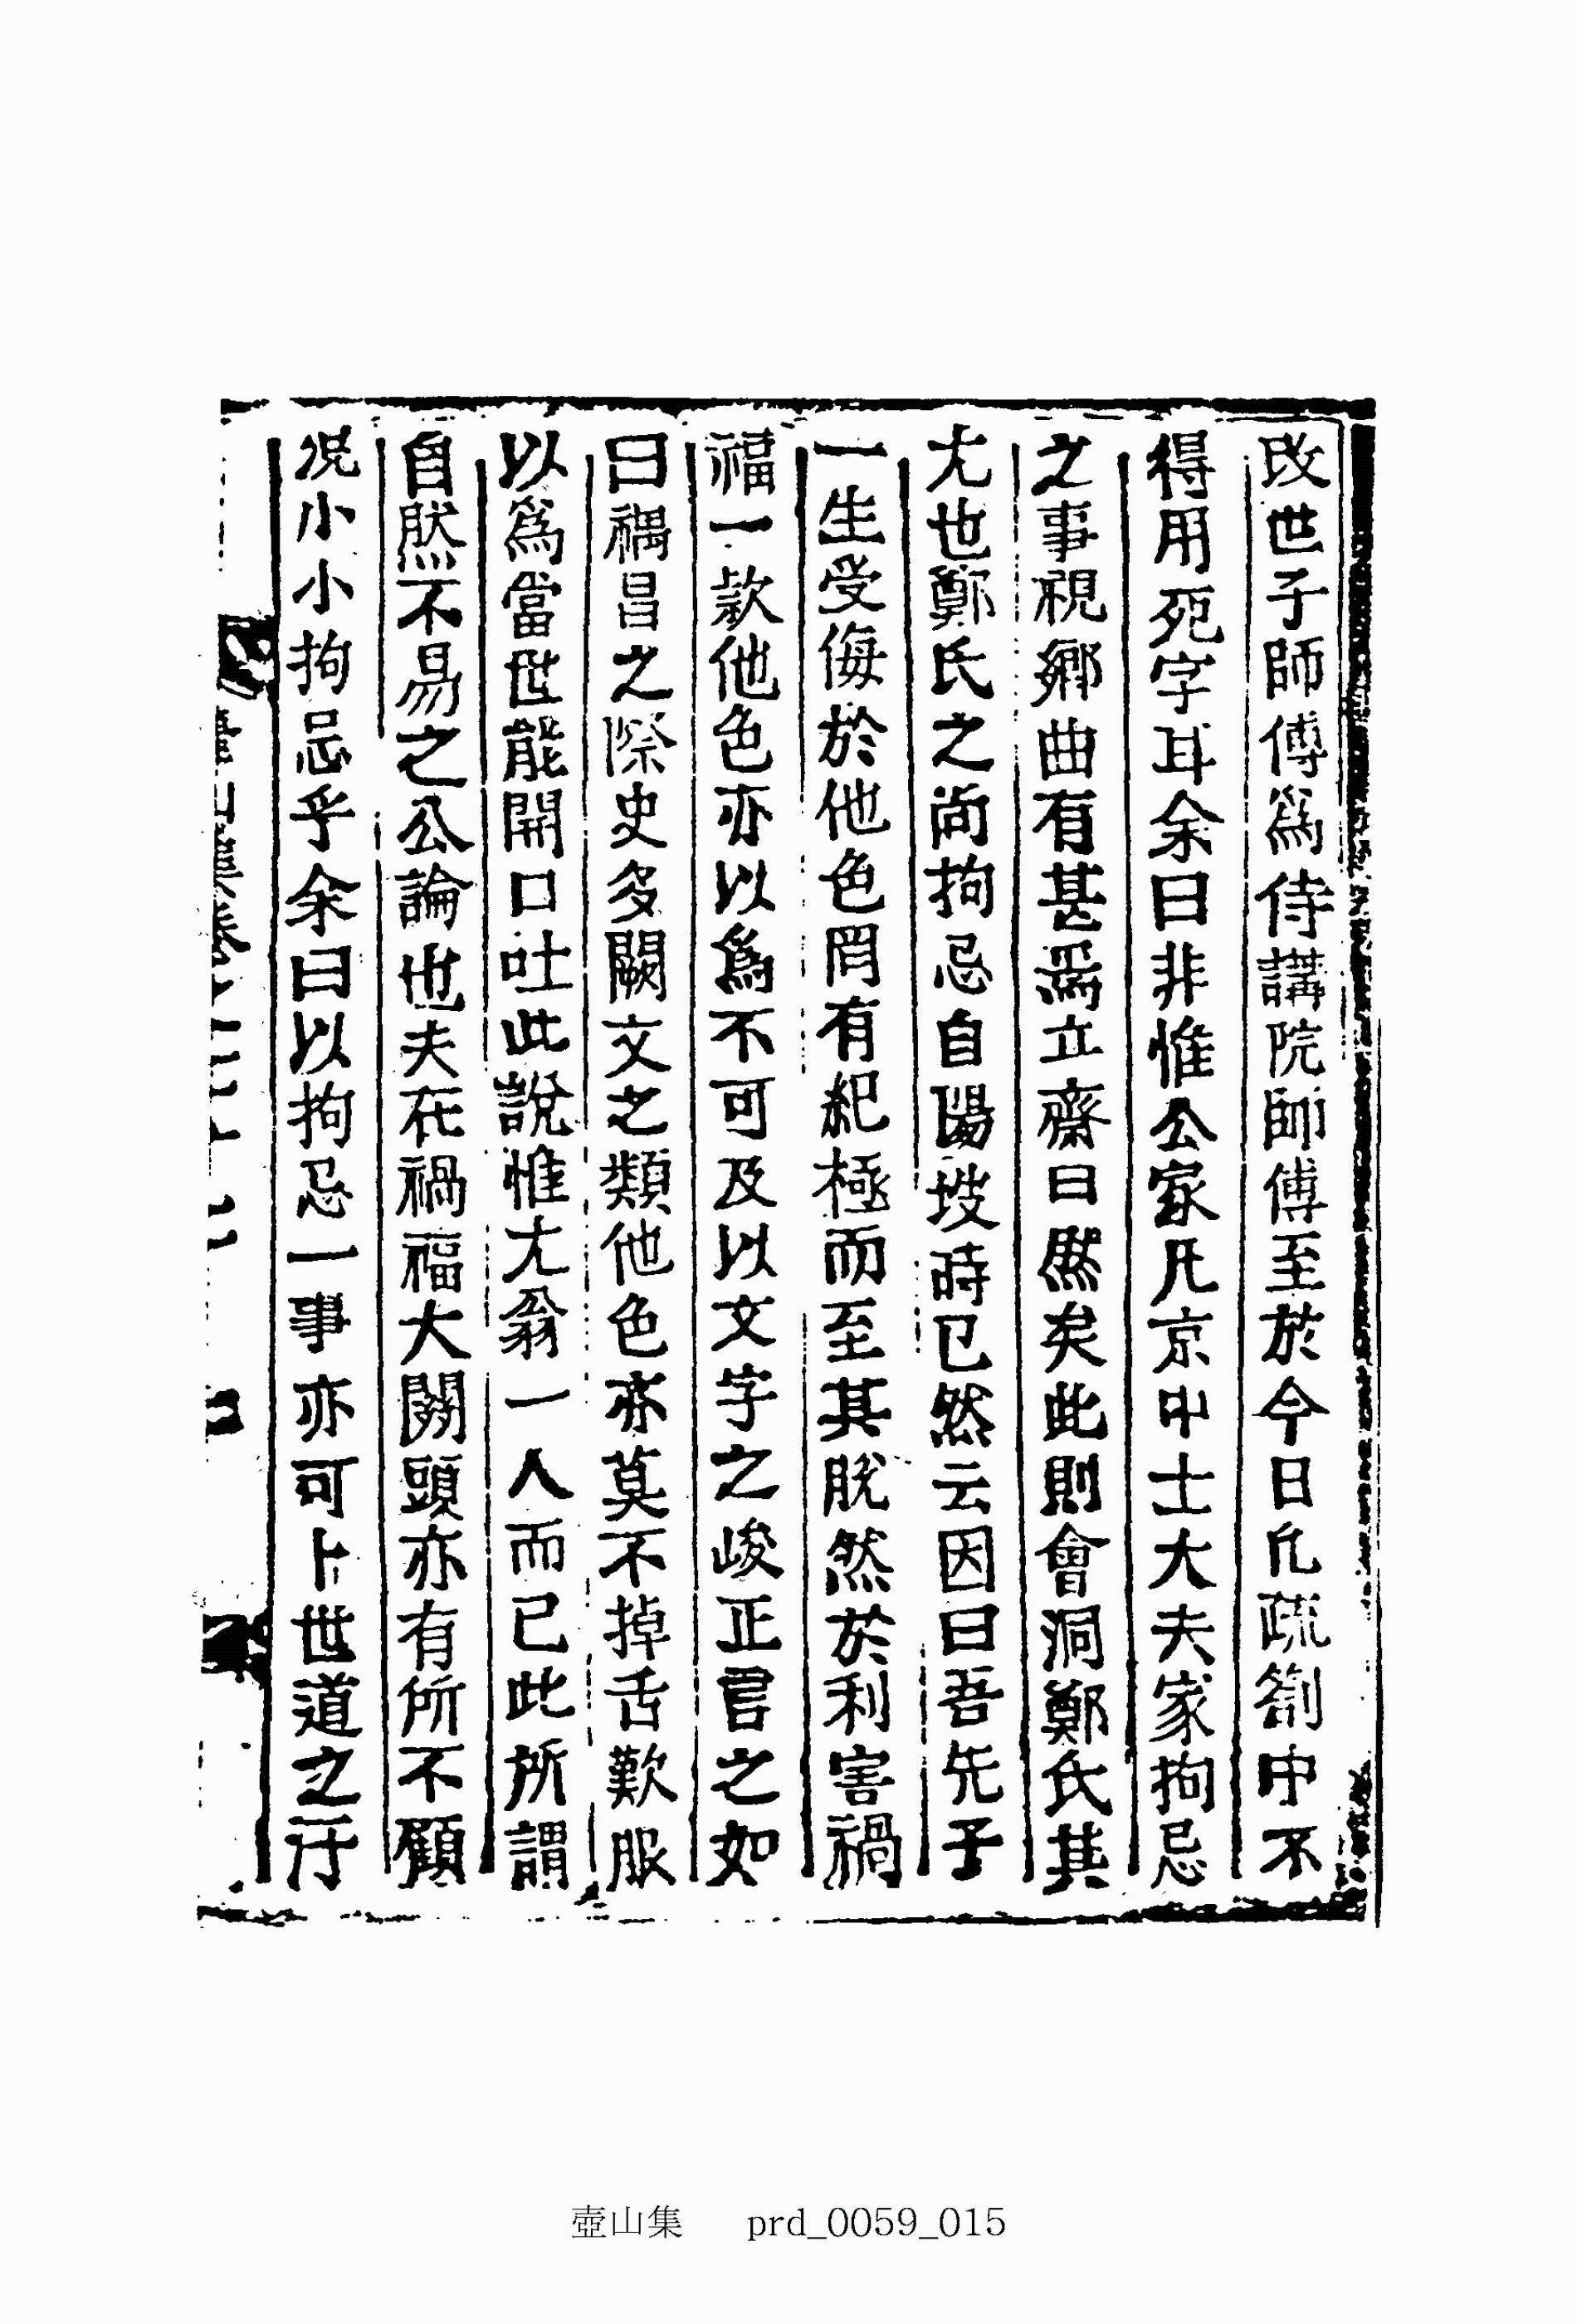 改世子師傅爲侍講院師傅至於今日凡疏箚中不
得用死字耳余曰非惟公家凡京中士大夫家拘忌
之事視鄕曲有甚焉立齋曰然矣此則會洞鄭氏其
尤也鄭氏之尙拘忌自陽坡時已然云因曰吾先子
一生受侮於他色罔有紀極而至其脫然於利害禍
福一款他色亦以爲不可及以文字之峻正言之如
曰禑昌之際史多闕文之類他色亦莫不掉舌歎服
以爲當世能開口吐此說惟尤翁一人而已此所謂
自然不易之公論也夫在禍福大關頭亦有所不顧
况小小拘忌乎余曰以拘忌一事亦可卜世道之汙
壺山集卷
壺山集 prd_0059_015